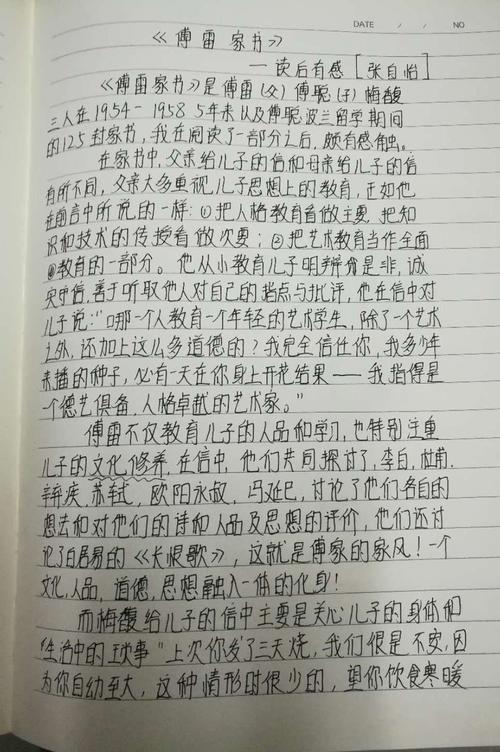 DATE / / NO
《傅雷家书》
—读后有感[张自怡]
《傅雷家书》是傅雷(父)傅聪(子)梅馥
三人在1954-1958 5年来以及傅聪波兰留学期间
的125封家书,我在阅读了一部分之后,颇有感触。
在家书中,父亲给儿子的信和母亲给儿子的信
有所不同,父亲大多重视儿子思想上的教育,正如他
在前言中所说的一样:①把人格教育看做主要,把知
识和技术的传授看做次要;②把艺术教育当作全面
教育的一部分。他从小教育儿子明辨是非,诚
实守信,善于听取他人对自己的指点与批评,他在信中对
儿子说:“哪一个人教育一个年轻的艺术学生,除了一个艺术
之外,还加上这么多道德的?我完全信任你,我多少年
来播的种子,必有一天在你身上开花结果——我指得是
一个德艺俱备,人格卓越的艺术家。”
傅雷不仅教育儿子的人品和学习,也特别注重
儿子的文化修养,在信中,他们共同探讨了,李白,杜甫,
辛疾,苏轼,欧阳永叔,冯延巳,讨论了他们各自的
想法和对他们的诗和人品及思想的评价,他们还讨
论了白居易的《长恨歌》,这就是傅家的家风!一个
文化,人品,道德,思想融入一体的化身!
而梅馥给儿子的信中主要是关心儿子的身体和
“生活中的琐事”上次你发了三天烧,我们很是不安,因
为你自幼至大,这种情形时很少的,望你饮食寒暖